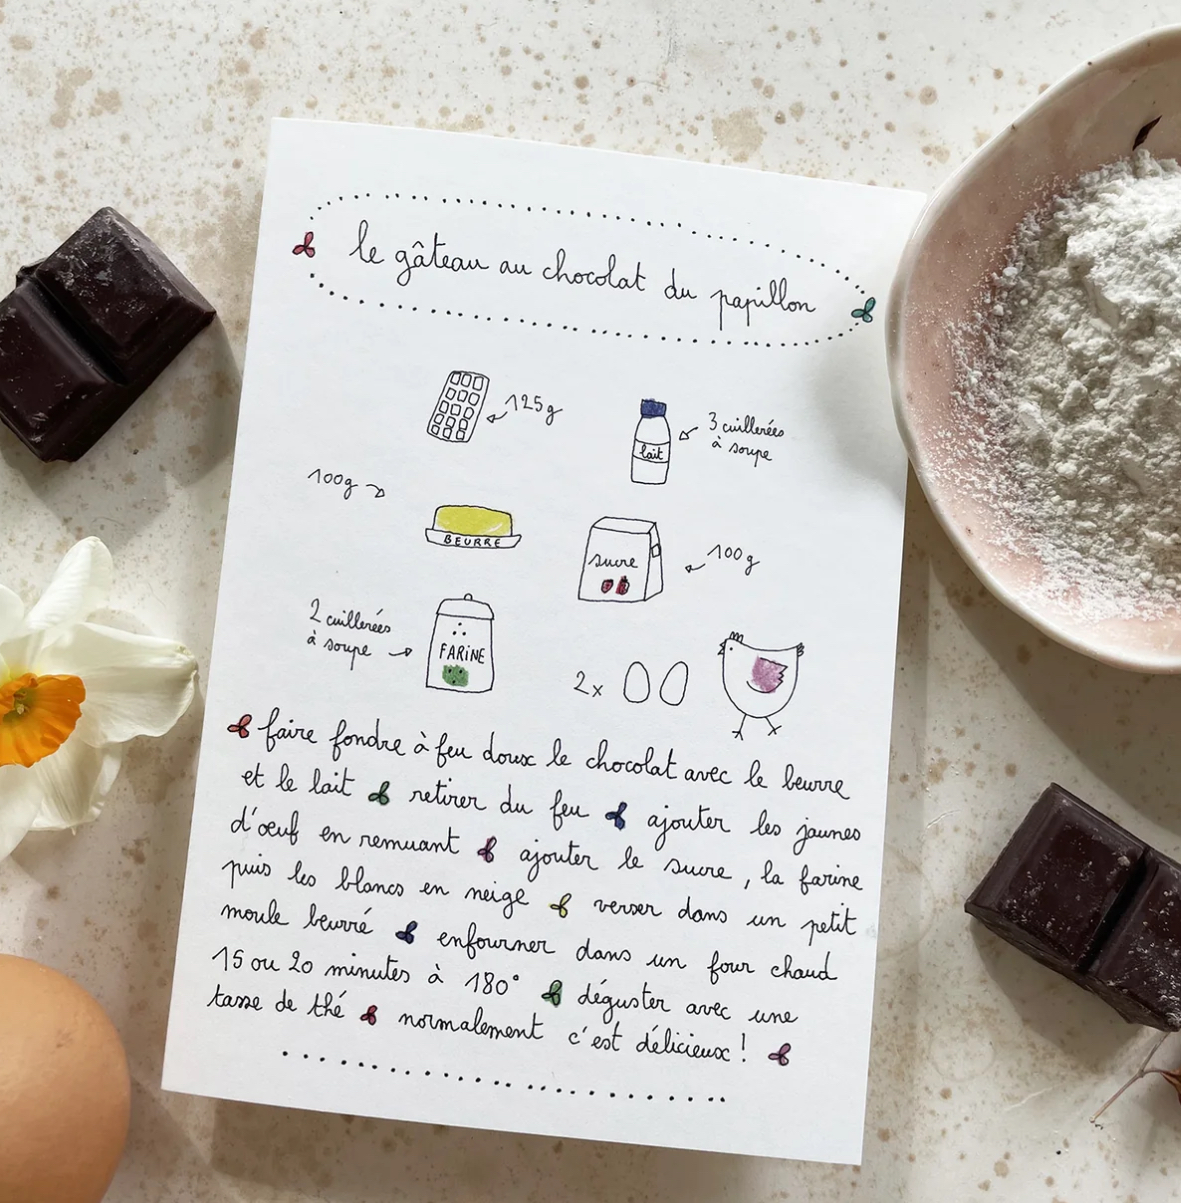 le gâteau au chocolat du papillon
125g
3 cuillerées
à soupe
lait
100g
BEURRE
sucre
100g
2 cuillerées
à soupe
FARiNE
2x
faire fondre à feu doux le chocolat avec le beurre
et le lait retirer du feu ajouter les jaunes
d'œuf en remuant ajouter le sucre, la farine
puis les blancs en neige verser dans un petit
moule beurré enfourner dans un four chaud
15 ou 20 minutes à 180° déguster avec une
tasse de thé normalement c'est délicieux !